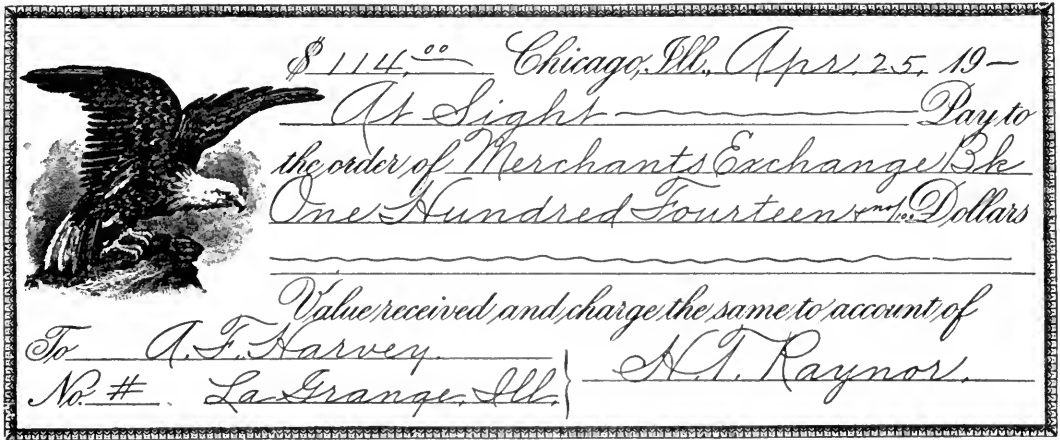 $ 114.00 Chicago, Ill., Apr. 25, 19—
At Sight Pay to
the order of Merchants Exchange Bk
One Hundred Fourteen & no/100 Dollars
Value received and charge the same to account of
To A. F. Harvey. H. T. Raynor.
No. # La Grange, Ill.